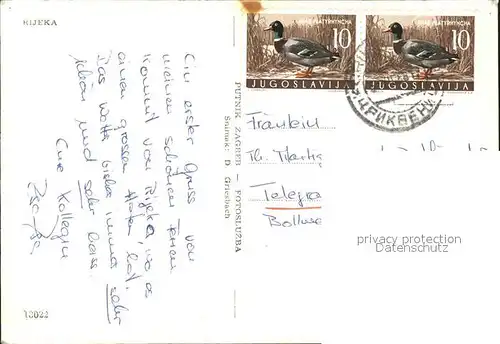 RIJEKA
Ein erster Gruss von
meinen schönen
kommt von Rijeka, wo es
einen grossen Hafen hat.
Das Wetter bisher immer sehr
schön und sehr heiss.
Eure Kollegin
13022
PUTNIK ZAGREB — FOTOSLUŽBA
Snimak: D. Griesbach
ANAS PLATYRHYNCHA
10
JUGOSLAVIJA
ANAS PLATYRHYNCHA
10
JUGOSLAVIJA
ЦРИКВЕНИ
Fräulein
Th.
Telegra
privacy protection
Datenschutz